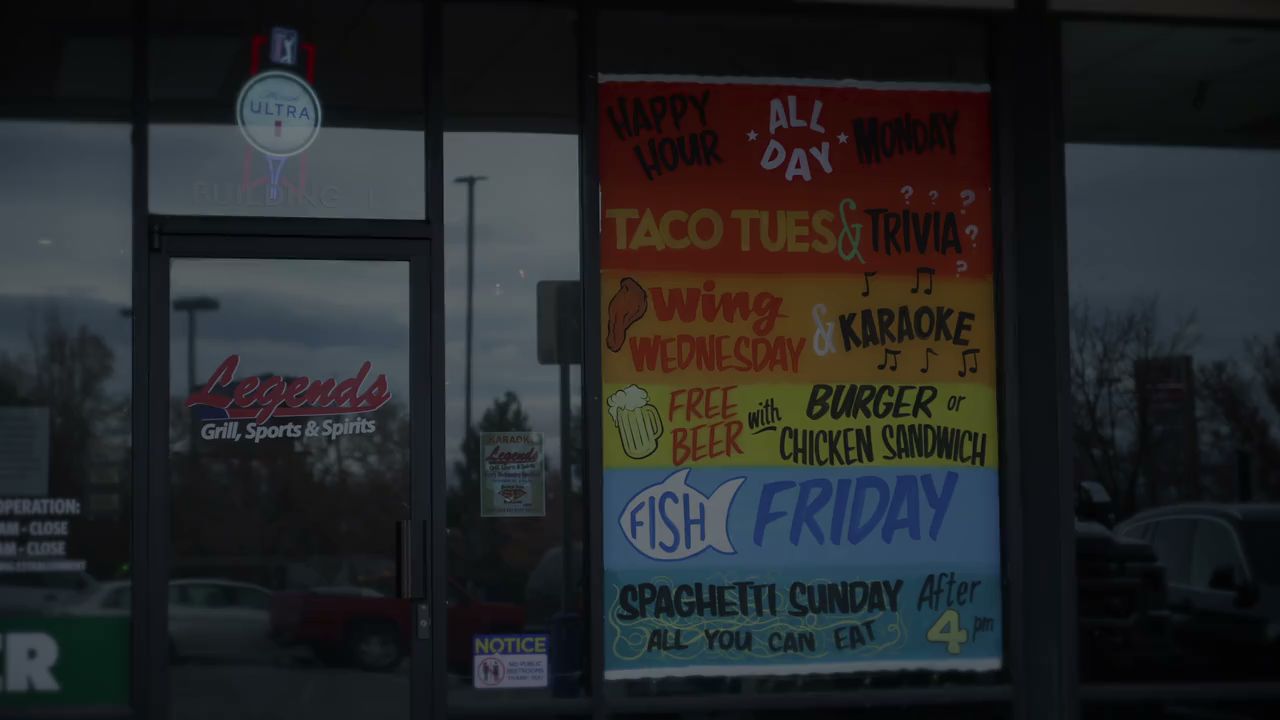 ULTRA
BUILDING
Legends
Grill, Sports & Spirits
OPERATION:
AM - CLOSE
AM - CLOSE
ER
KARAOKE
Legends
NOTICE
NO PUBLIC
RESTROOMS
THANK YOU
HAPPY HOUR ALL DAY MONDAY
TACO TUES & TRIVIA ? ? ? ? ?
Wing WEDNESDAY & KARAOKE
FREE BEER with BURGER or CHICKEN SANDWICH
FISH FRIDAY
SPAGHETTI SUNDAY After 4 pm
ALL YOU CAN EAT